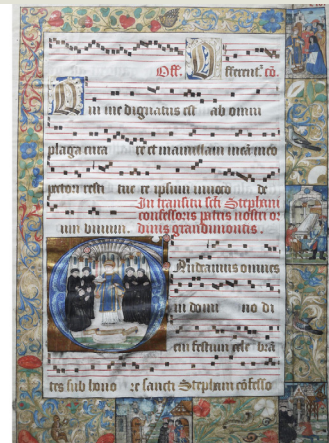 Off. Offerent.
in me dignatus est ab omni
plaga cura re et maculam
pectori resti tue re ipsum invoco de
In transitu scti Stephani
confessoris patris nostri or
um vivum. dinis grandimontis.
Audeamus omnes
in domi no di
em festum cele bra
tes sub hono re sancti Stephani cōfesso